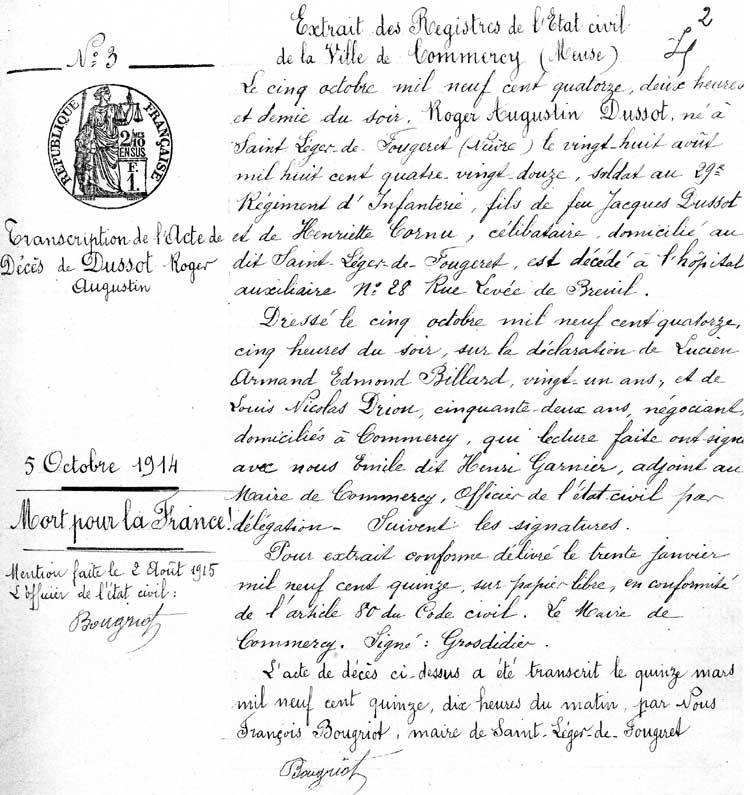 2
Extrait des Registres de l'Etat civil
de la Ville de Commercy (Meuse)
N.º 3
RÉPUBLIQUE FRANÇAISE
2/10 MES
EN SUS
F.
1.
Transcription de l'Acte de
Décès de Dussot Roger
Augustin
5 Octobre 1914
Mort pour la France!
Mention faite le 2 Août 1915
L'officier de l'état civil :
Bougriot
Le cinq octobre mil neuf cent quatorze, deux heures
et demie du soir, Roger Augustin Dussot, né à
Saint Léger-de-Fougeret (Nièvre) le vingt huit août
mil huit cent quatre-vingt-douze, soldat au 29e
Régiment d'Infanterie, fils de feu Jacques Dussot
et de Henriette Cornu, célibataire, domicilié au
dit Saint-Léger-de-Fougeret, est décédé à l'hôpital
auxiliaire N.º 28 Rue Levée de Breuil.
Dressé le cinq octobre mil neuf cent quatorze,
cinq heures du soir, sur la déclaration de Lucien
Armand Edmond Billard, vingt-un ans, et de
Louis Nicolas Drion, cinquante-deux ans, négociant,
domiciliés à Commercy, qui lecture faite ont signé
avec nous Emile dit Henri Garnier, adjoint au
Maire de Commercy, Officier de l'état civil par
délégation - Suivent les signatures.
Pour extrait conforme délivré le trente janvier
mil neuf cent quinze, sur papier libre, en conformité
de l'article 80 du Code civil. Le Maire de
Commercy. Signé : Grosdidier.
L'acte de décès ci-dessus a été transcrit le quinze mars
mil neuf cent quinze, dix heures du matin, par Nous
François Bougriot, maire de Saint-Léger-de-Fougeret
Bougriot